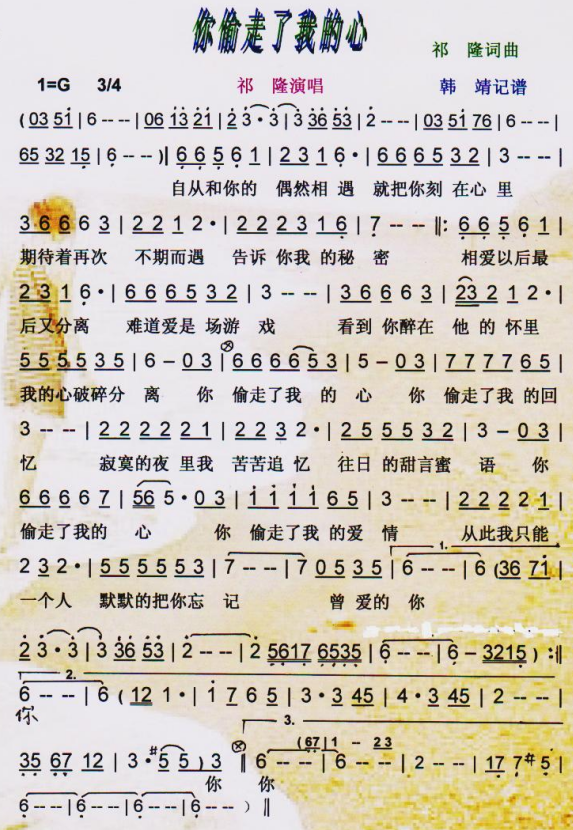 你偷走了我的心
祁 隆词曲
1=G 3/4 祁 隆演唱 韩 靖记谱
( 03 51 | 6 - - | 06 13 21 | 2 3 · 3 | 3 36 53 | 2 - - | 03 51 76 | 6 - - |
65 32 15 | 6 - - )| 6 6 5 6 1 | 2 3 1 6 · | 6 6 6 5 3 2 | 3 - - |
自从和你的 偶然相 遇 就把你刻 在心 里
3 6 6 6 3 | 2 2 1 2 · | 2 2 2 3 1 6 | 7 - - ‖: 6 6 5 6 1 |
期待着再次 不期而遇 告诉 你我 的秘 密 相爱以后最
2 3 1 6 · | 6 6 6 5 3 2 | 3 - - | 3 6 6 6 3 | 23 2 1 2 · |
后又分离 难道爱是 场游 戏 看到 你醉在 他 的 怀里
5 5 5 5 3 5 | 6 - 0 3 | 6 6 6 6 5 3 | 5 - 0 3 | 7 7 7 7 6 5 |
我的心破碎分 离 你 偷走了我 的 心 你 偷走了我 的回
3 - - | 2 2 2 2 2 1 | 2 2 3 2 · | 2 5 5 5 3 2 | 3 - 0 3 |
忆 寂寞的夜 里我 苦苦追 忆 往日 的甜言蜜 语 你
6 6 6 6 7 | 56 5 · 0 3 | 1 1 1 1 6 5 | 3 - - | 2 2 2 2 1 |
偷走了我的 心 你 偷走了我 的爱 情 从此我只能
1.
2 3 2 · | 5 5 5 5 5 3 | 7 - - | 7 0 5 3 5 | 6 - - | 6 (36 71 |
一个人 默默的把你忘 记 曾 爱的 你
2 3 · 3 | 3 36 53 | 2 - - | 2 5617 6535 | 6 - - | 6 - 3215 ) :‖
2.
6 - - | 6 ( 12 1 · | 1 7 6 5 | 3 · 3 45 | 4 · 3 45 | 2 - - |
你
3.
(67 | 1 - 23
35 67 12 | 3 · #5 5 ) 3 ‖ 6 - - | 6 - - | 2 - - | 17 7 #5 |
你 你
6 - - | 6 - - | 6 - - | 6 - - ) ‖